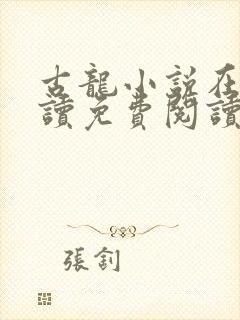 古龍小說在
讀免費閱讀
張釗